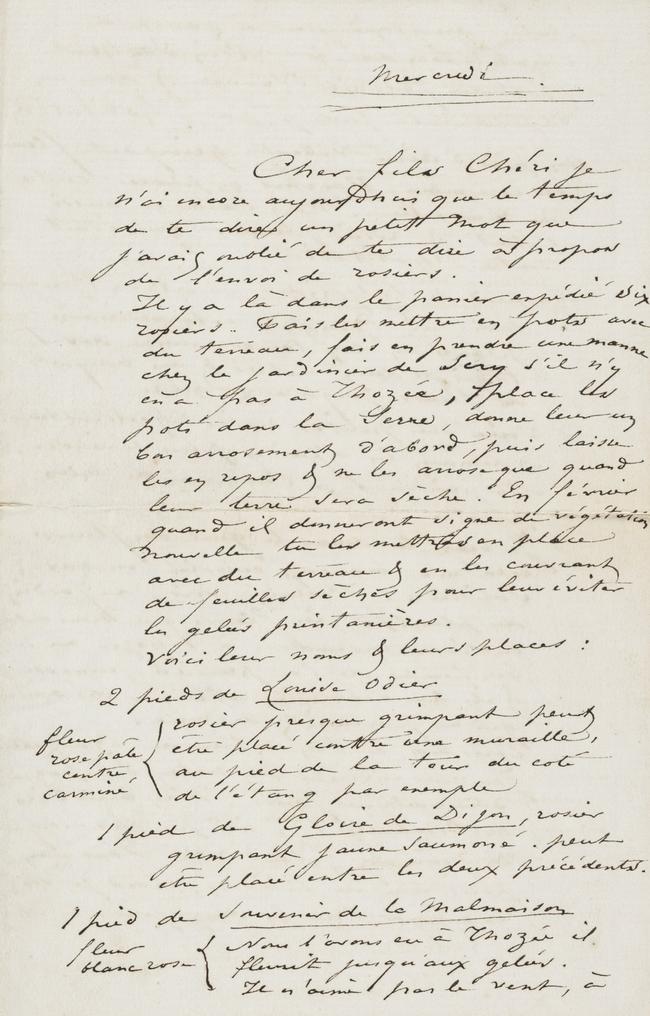 Mercredi
Cher fils Chéri je
n'ai encore aujourdhui que le temps
de te dire un petit mot que
j'avais oublié de te dire à propos
de l'envoi de rosiers.
Il y a là dans le panier expédié six
rosiers. Fais les mettre en pots avec
du terreau, fais en prendre une manne
chez le jardinier de Sery s'il n'y
en a pas à Thozée, place les
pots dans la Serre, donne leur un
bon arrosement d'abord, puis laisse
les en repos & ne les arrose que quand
leur terre sera sèche. En février
quand il donneront signe de végétation
nouvelle tu les mettras en place
avec du terreau & en les couvrant
de feuilles sèches pour leur éviter
les gelées printanières.
Voici leur noms & leurs places :
2 pieds de Louise Odier
fleur
rose pâle
centre
carminé
rosier presque grimpant peut
être placé contre une muraille,
au pied de la tour du coté
de l'étang par exemple
1 pied de Gloire de Dijon, rosier
grimpant jaune saumoné. peut
être placé entre les deux précédents.
1 pied de Souvenir de la Malmaison
fleur
blanc rosé
Nous l'avons eu à Thozée il
fleurit jusqu'aux gelées.
Il n'aime pas le vent, à